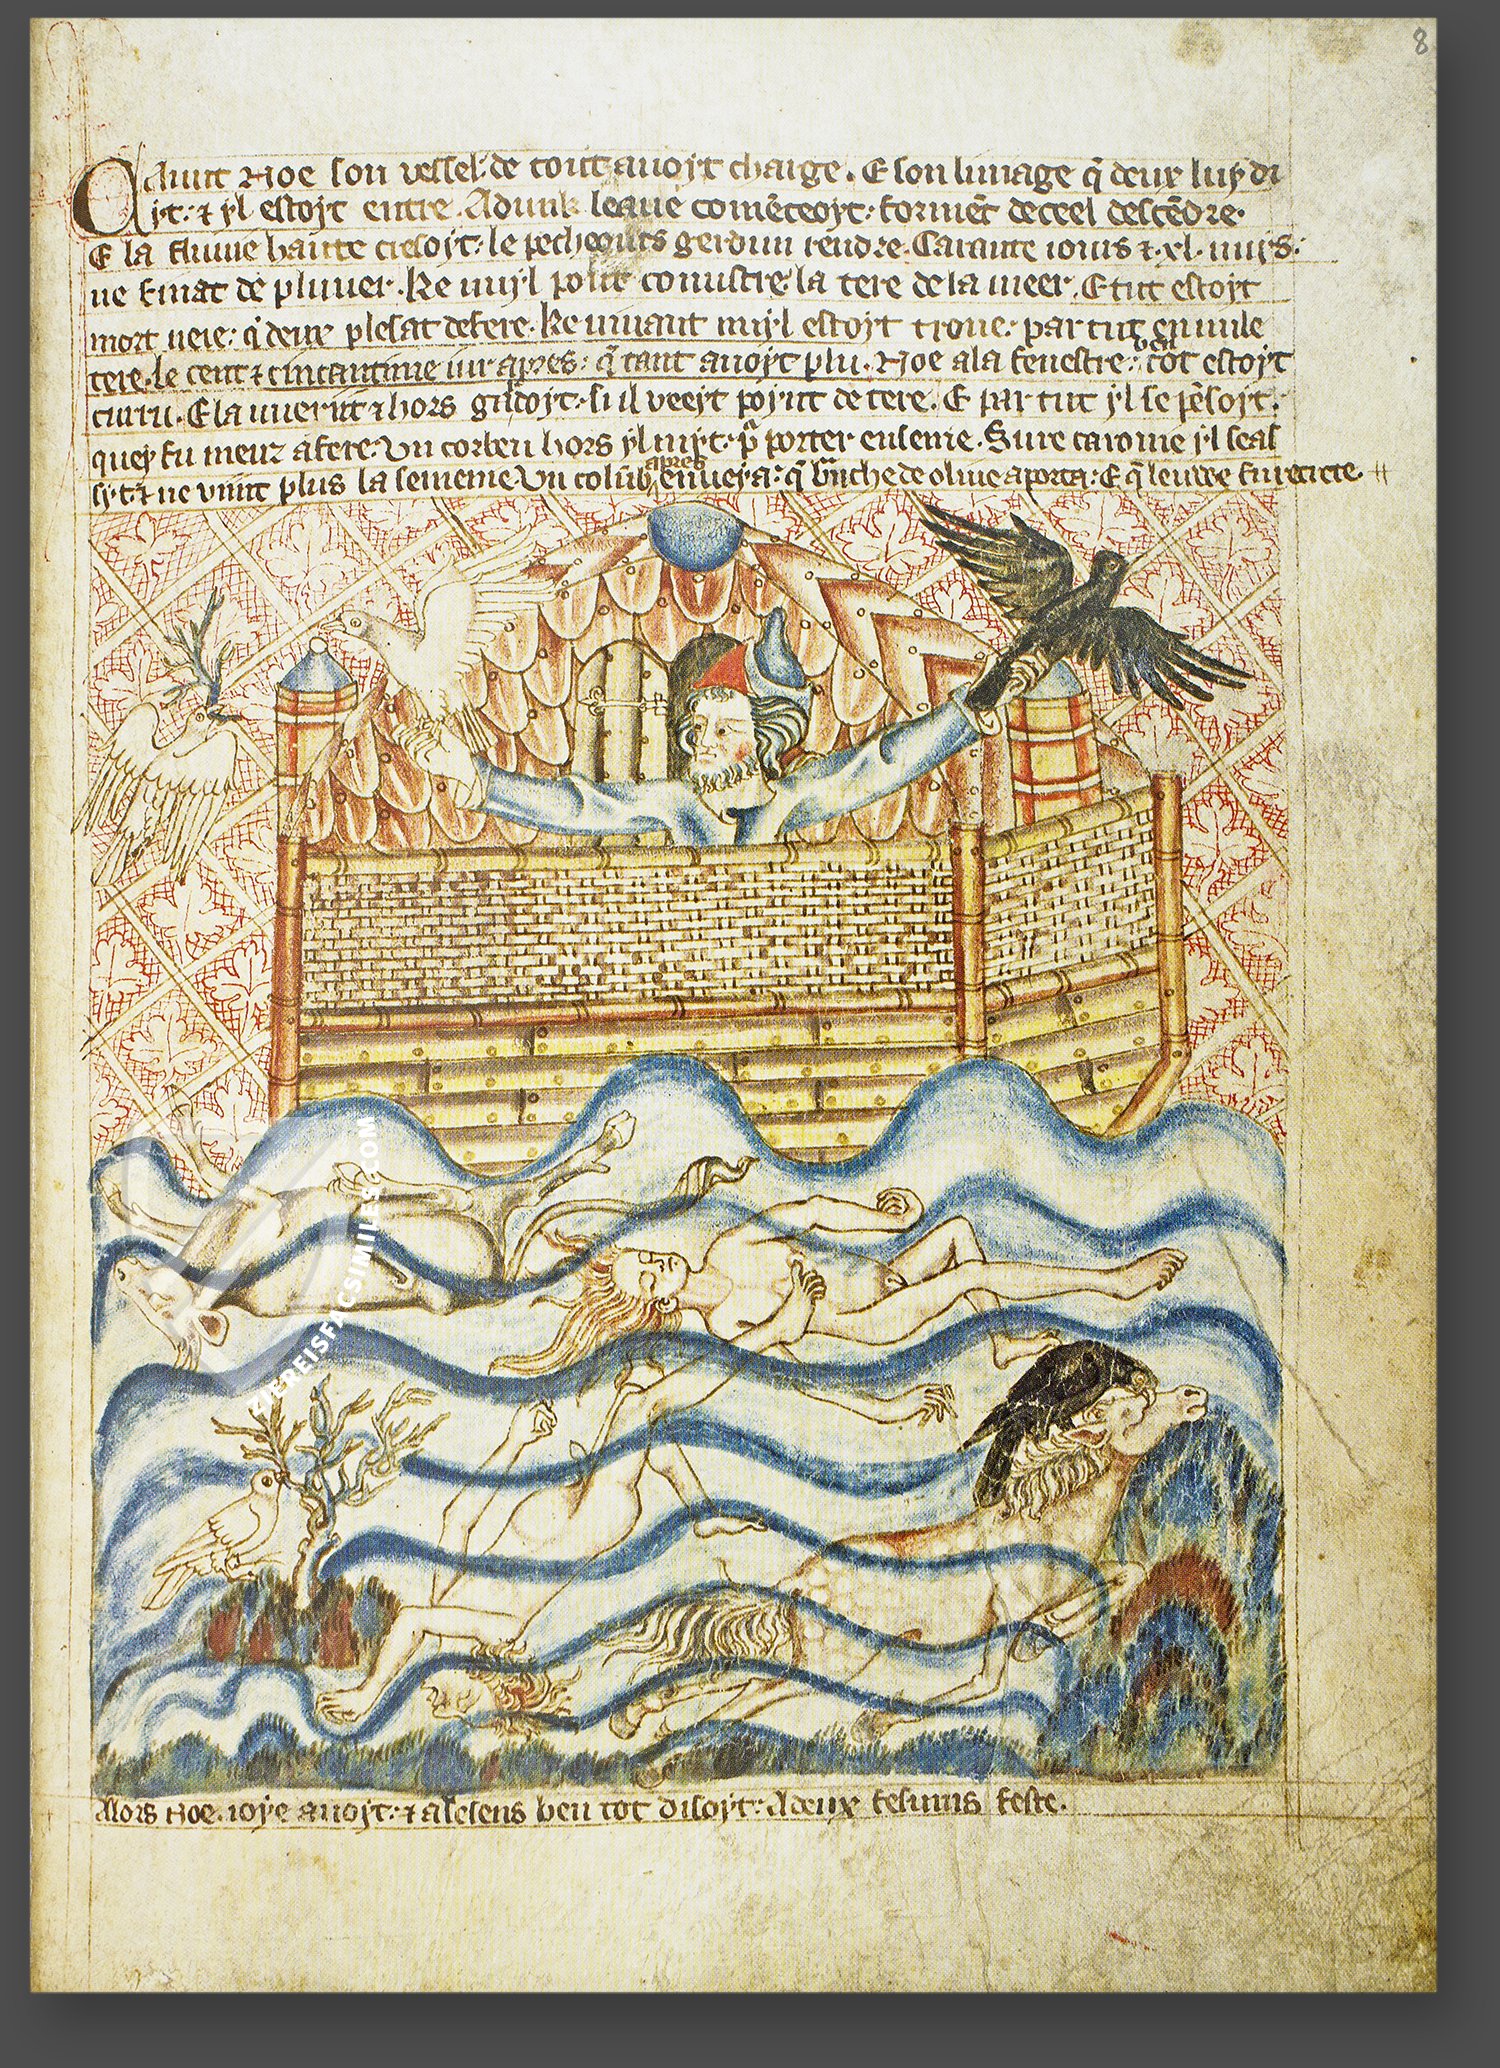 8
Qaunt Noe son vessel de tout auoyt charge. E son linnage q̃ deux luy di
yt: ⁊ yl estoyt entre. Adunk leaue comẽceoyt: forment de ceel descẽdre.
E la fluuie haute cresoyt: le pecheours gerdun rendre. Caraunte iours ⁊ .xl. nuys:
ne finat de pluuer. Ke nuyl pout conustre la tere de la meer. E tut estoyt
mort neie: q̃ deux plesat defere. Ke uiuaunt nuyl estoyt troue: par tut en uile
tere. Le cent ⁊ cincantime iur apres: q̃ tant auoyt plu. Noe a la fenestre: tot estoyt
E la uuerit ⁊ hors gardoyt: si il veeyt poynt de tere. E par tut yl se pẽsoyt:
quey fu meuz a fere. Vn corbeu hors yl myt: pr̃ porter enseme. Sure caroine yl seas
syt: ⁊ ne vint plus la sememe. Vn colũb apres enueya: q̃ brãche de oliue aporta: E q̃ leuwe fu retrete.
Alors Noe. ioye auoyt: ⁊ a lesens ben tot disoyt: A deux fesums feste.
ZIEREISFACSIMILES.COM